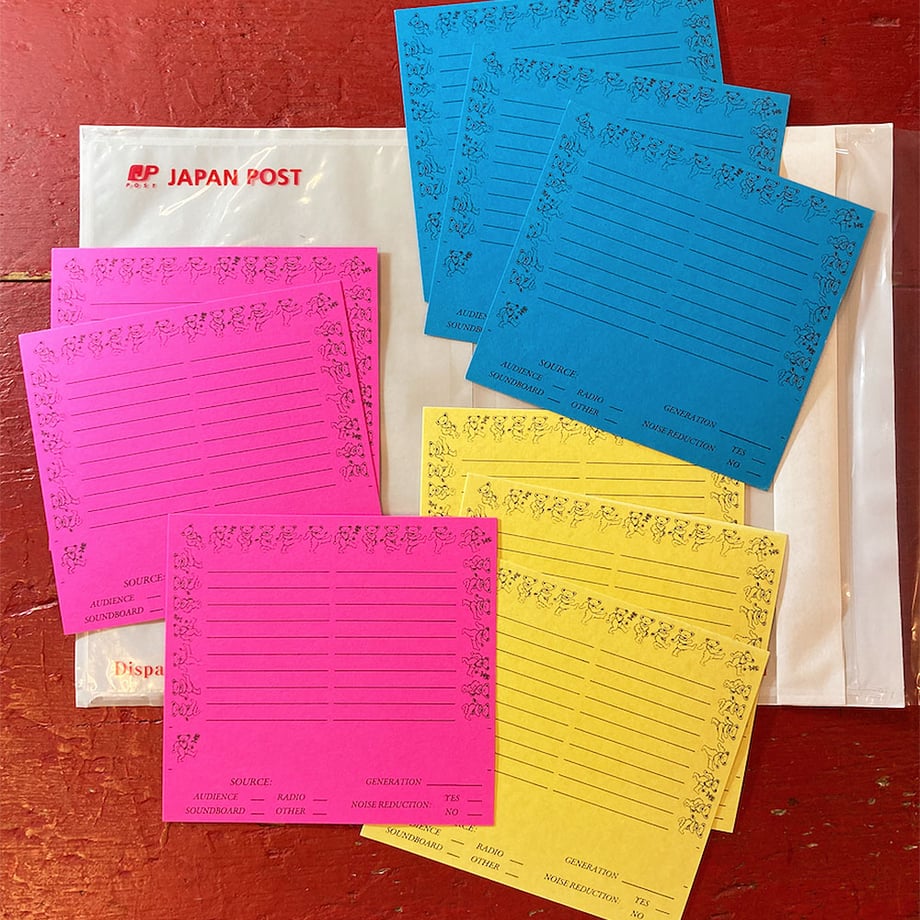 JP
POST
JAPAN POST
AUDIENCE
SOUNDB
SOURCE:
AUDIENCE
RADIO
GENERATION
SOUNDBOARD
OTHER
NOISE REDUCTION:
YES
NO
SOURCE:
AUDIENCE
SOUNDBOARD
Dispa
SOURCE:
GENERATION
AUDIENCE
RADIO
NOISE REDUCTION:
YES
SOUNDBOARD
OTHER
NO
RADIO
GENERATION
SOUNDBOARD
OTHER
NOISE REDUCTION:
YES
NO